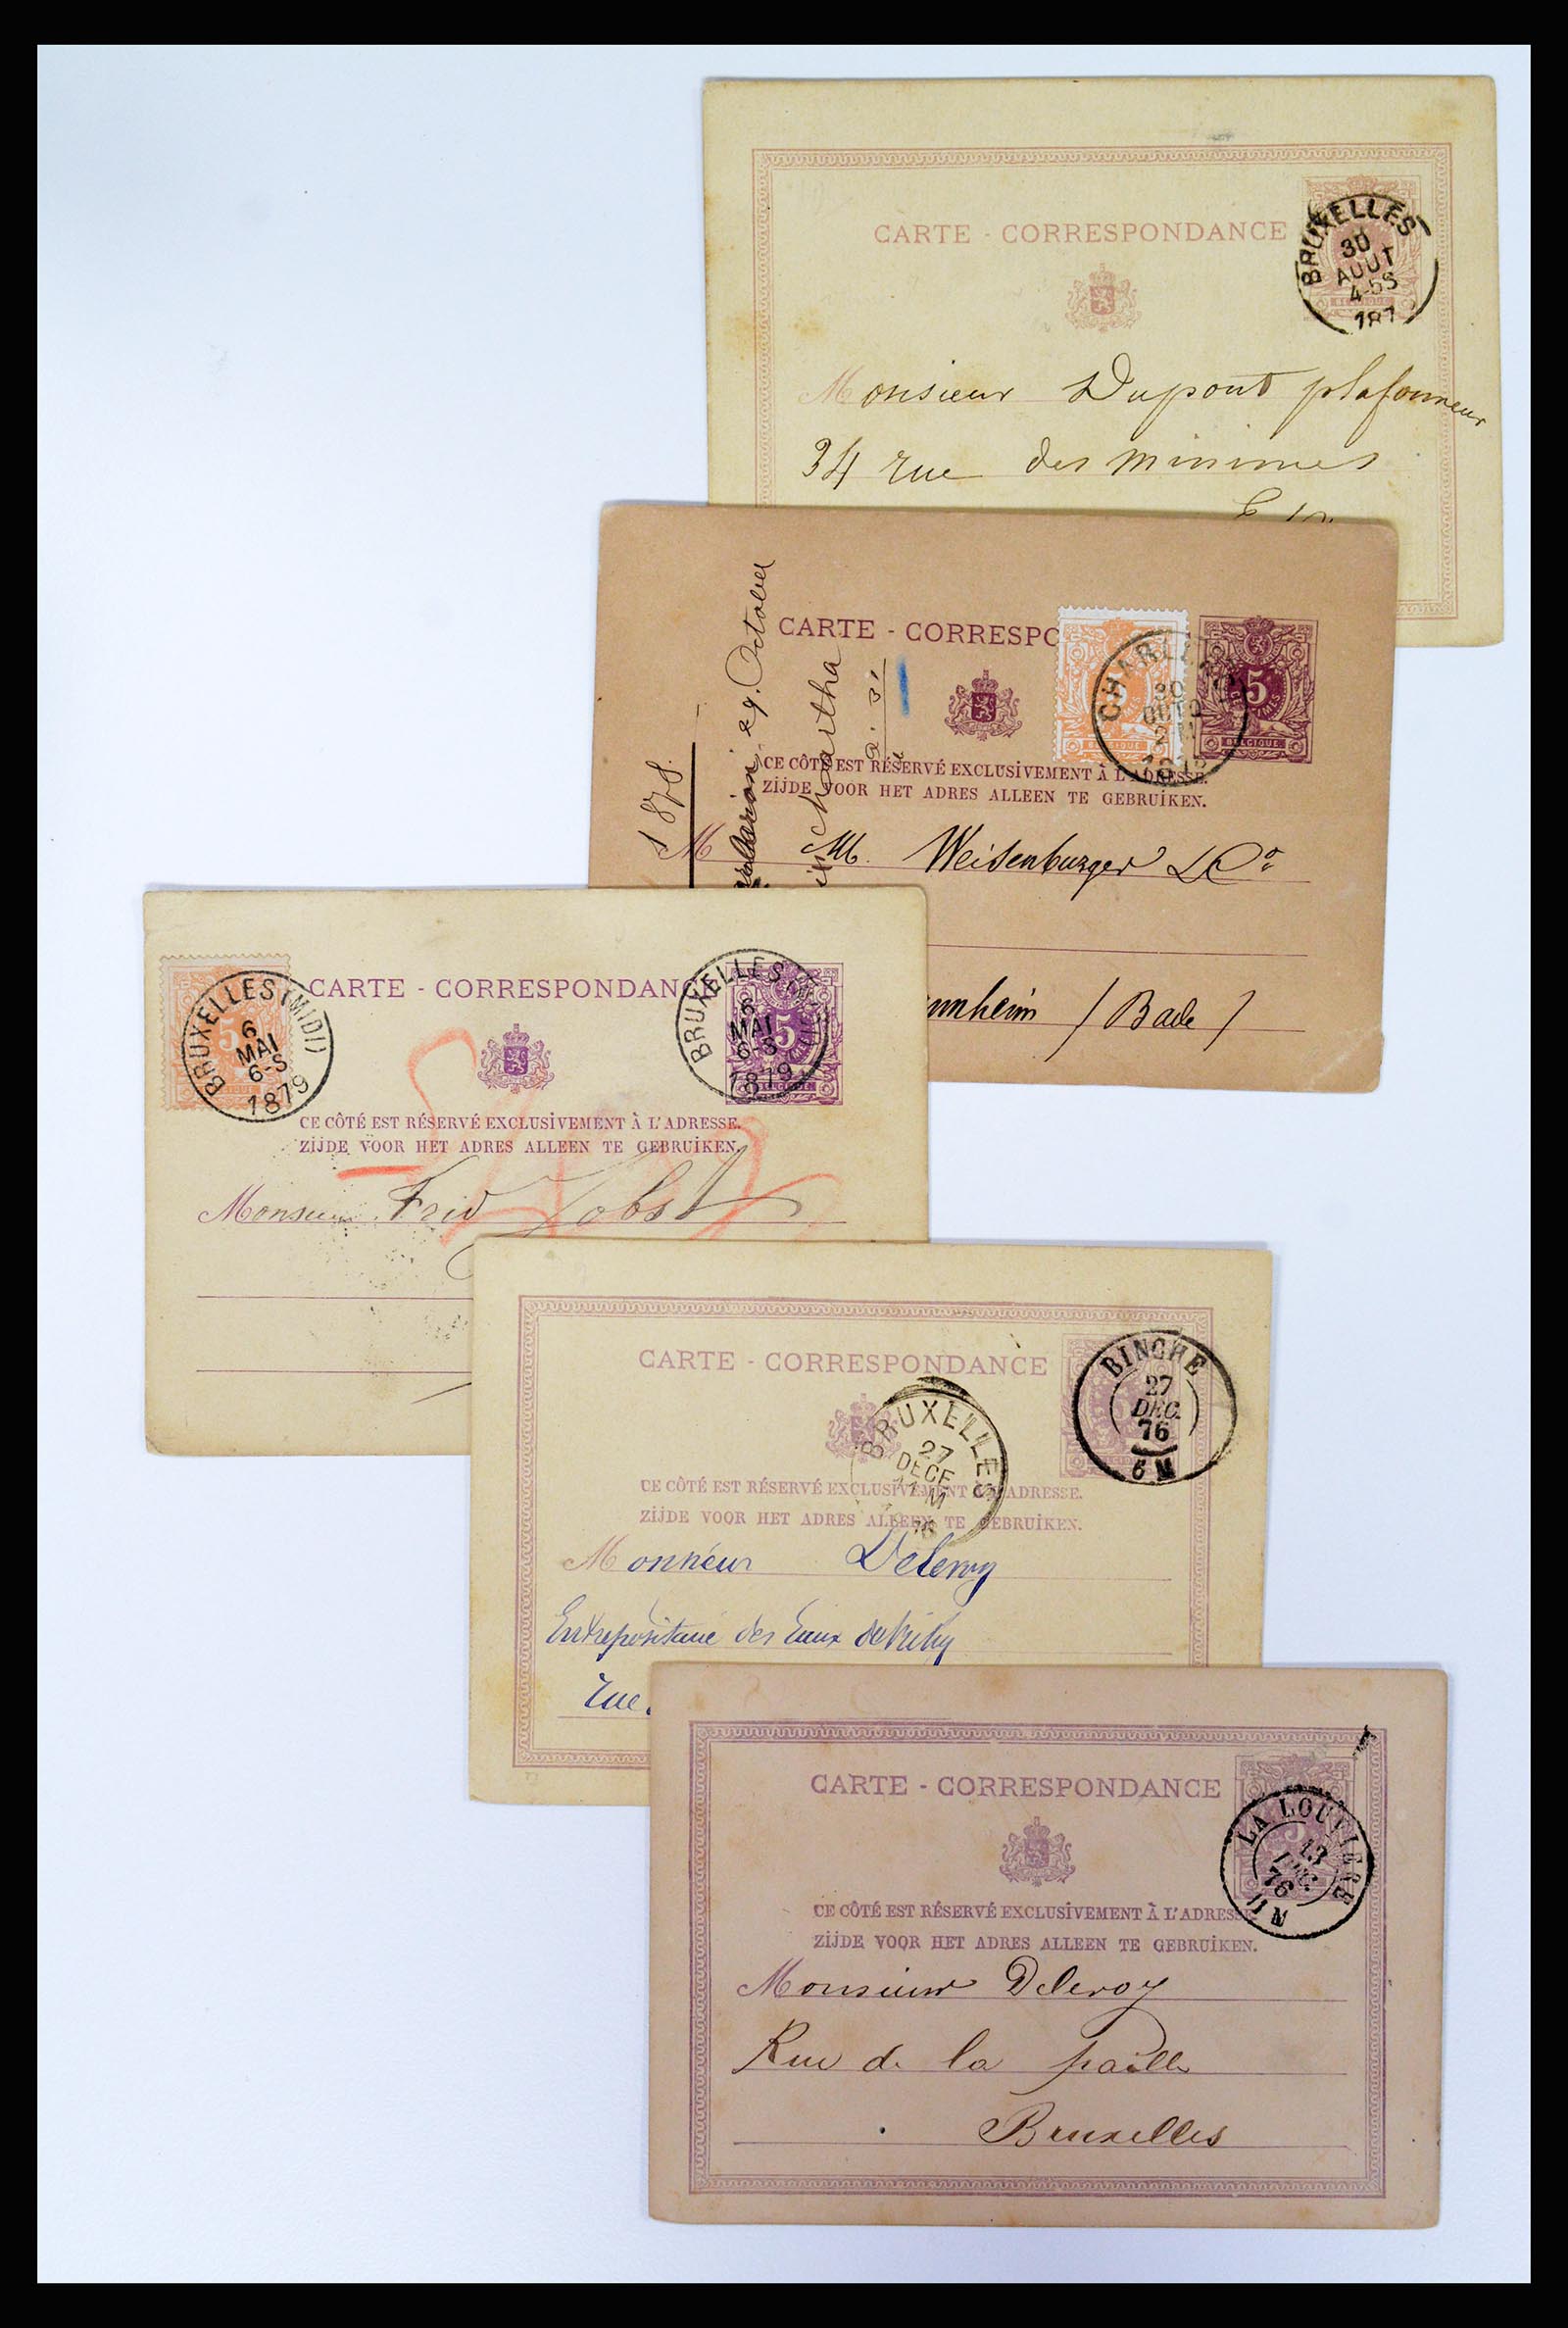 CARTE - CORRESPONDANCE
BRUXELLES
30
AOUT
4-5S
187
Monsieur Dupont plafonneur
34 rue des Minimes
CARTE - CORRESPO
5
BELGIQUE
BELGIQUE
CHARLE
30
2
CE CÔTÉ EST RÉSERVÉ EXCLUSIVEMENT À L'ADRESSE.
ZIJDE VOOR HET ADRES ALLEEN TE GEBRUIKEN.
29. October
Martha
1878.
M M. Weisenburger & Co
nnheim / Bade /
CARTE - CORRESPONDANCE
BRUXELLES (MIDI)
6
MAI
6-S
1879
BRUXELLES (MIDI)
6
MAI
6-S
1879
5
CE CÔTÉ EST RÉSERVÉ EXCLUSIVEMENT À L'ADRESSE.
ZIJDE VOOR HET ADRES ALLEEN TE GEBRUIKEN.
Monsieur Frid Jobst
CARTE - CORRESPONDANCE
BINCHE
27
DEC.
76
6 M
BRUXELLES
27
DECE
11 M
76
CE CÔTÉ EST RÉSERVÉ EXCLUSIVEMENT À L'ADRESSE.
ZIJDE VOOR HET ADRES ALLEEN TE GEBRUIKEN.
Monsieur Deleroy
Entrepositaire des Eaux de Vichy
rue
CARTE - CORRESPONDANCE
LA LOUVIERE
13
DEC.
76
CE CÔTÉ EST RÉSERVÉ EXCLUSIVEMENT À L'ADRESSE.
ZIJDE VOOR HET ADRES ALLEEN TE GEBRUIKEN.
Monsieur Deleroy
Rue de la paille
Bruxelles